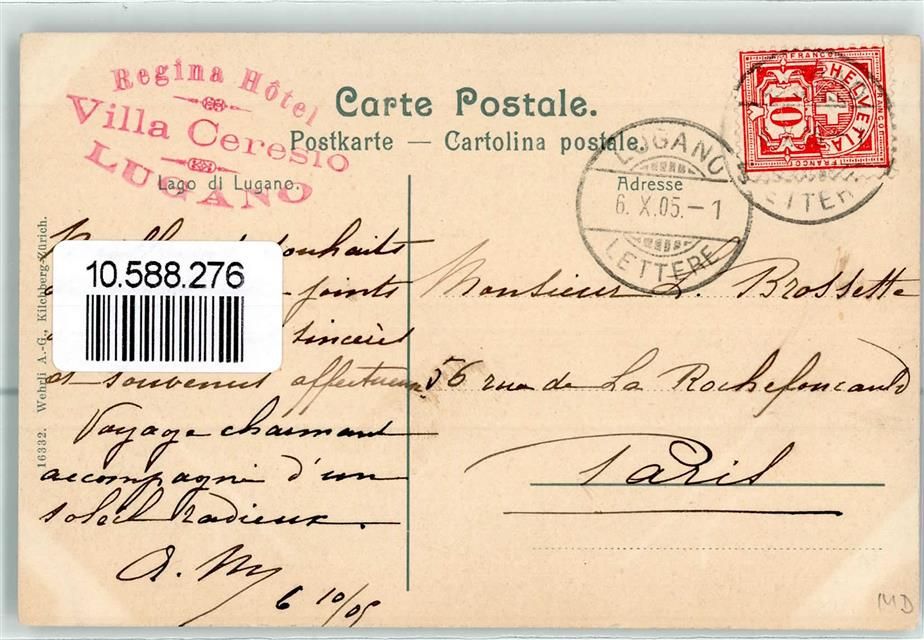 Regina Hôtel
Villa Ceresio
LUGANO
Carte Postale.
Postkarte — Cartolina postale.
Lago di Lugano.
Adresse
FRANCO
HELVETIA
10
FRANCO
LUGANO
6. X.05.-1
LETTERE
LETTERE
16332. Wehrli A.-G., Kilchberg-Zürich.
10.588.276
souhaits
joints
sincères
et souvenirs affectueux
Voyage charmant
accompagné d'un
soleil radieux.
A. M
6 10/05
Monsieur L. Brossette
56 rue de La Rochefoucauld
Paris
MD